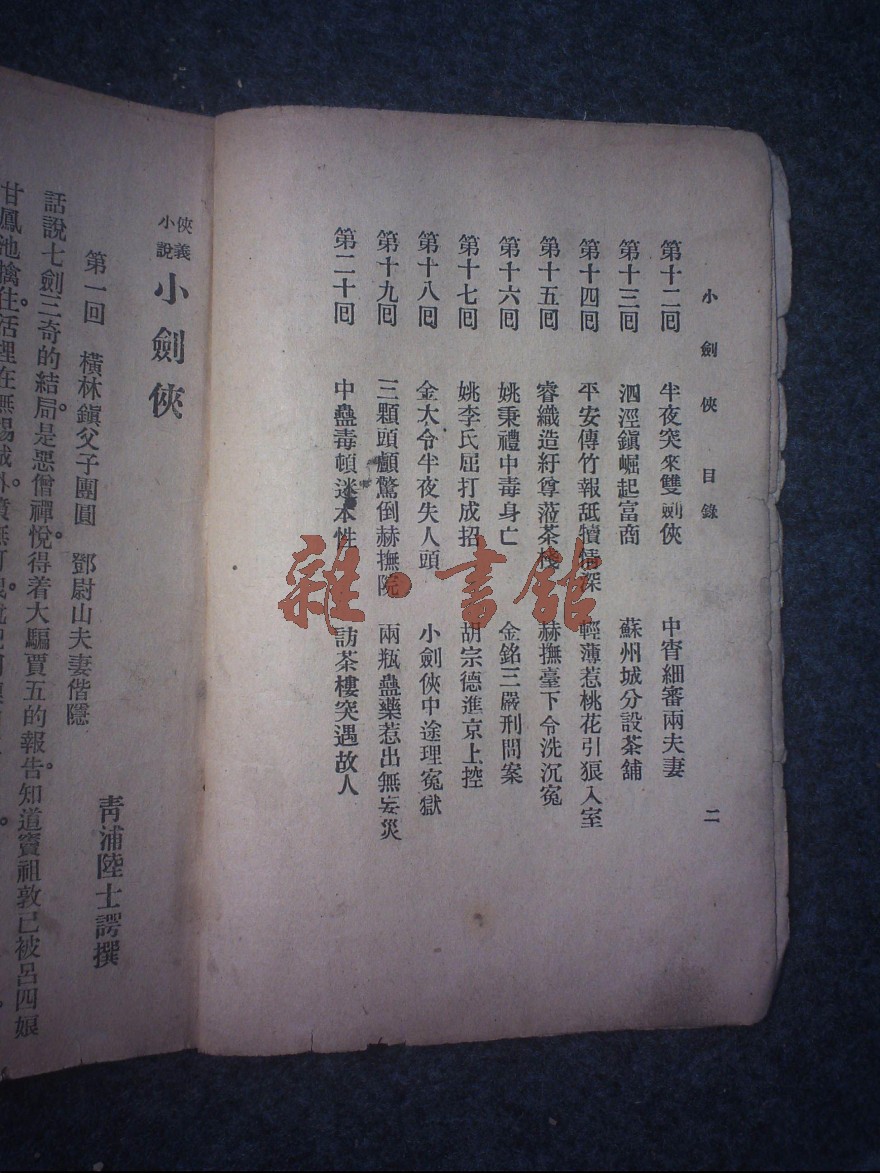 小劍俠目錄 二
第十二回 半夜突來雙劍俠 中宵細審兩夫妻
第十三回 泗涇鎮崛起富商 蘇州城分設茶舖
第十四回 平安傳竹報舐犢情深 輕薄惹桃花引狼入室
第十五回 睿織造紆尊蒞茶棧 赫撫臺下令洗沉寃
第十六回 姚秉禮中毒身亡 金銘三嚴刑問案
第十七回 姚李氏屈打成招 胡宗德進京上控
第十八回 金大令半夜失人頭 小劍俠中途理寃獄
第十九回 三顆頭顱驚倒赫撫院 兩瓶蠱藥惹出無妄災
第二十回 中蠱毒頓迷本性 訪茶樓突遇故人
俠義小說 小劍俠
青浦陸士諤撰
第一回 橫林鎮父子團圓 鄧尉山夫妻偕隱
話說七劍三奇的結局。是惡僧禪悅得着大騙賈五的報告。知道竇祖敦已被呂四娘
甘鳳池擒住。活埋在無錫城外
雜·書館